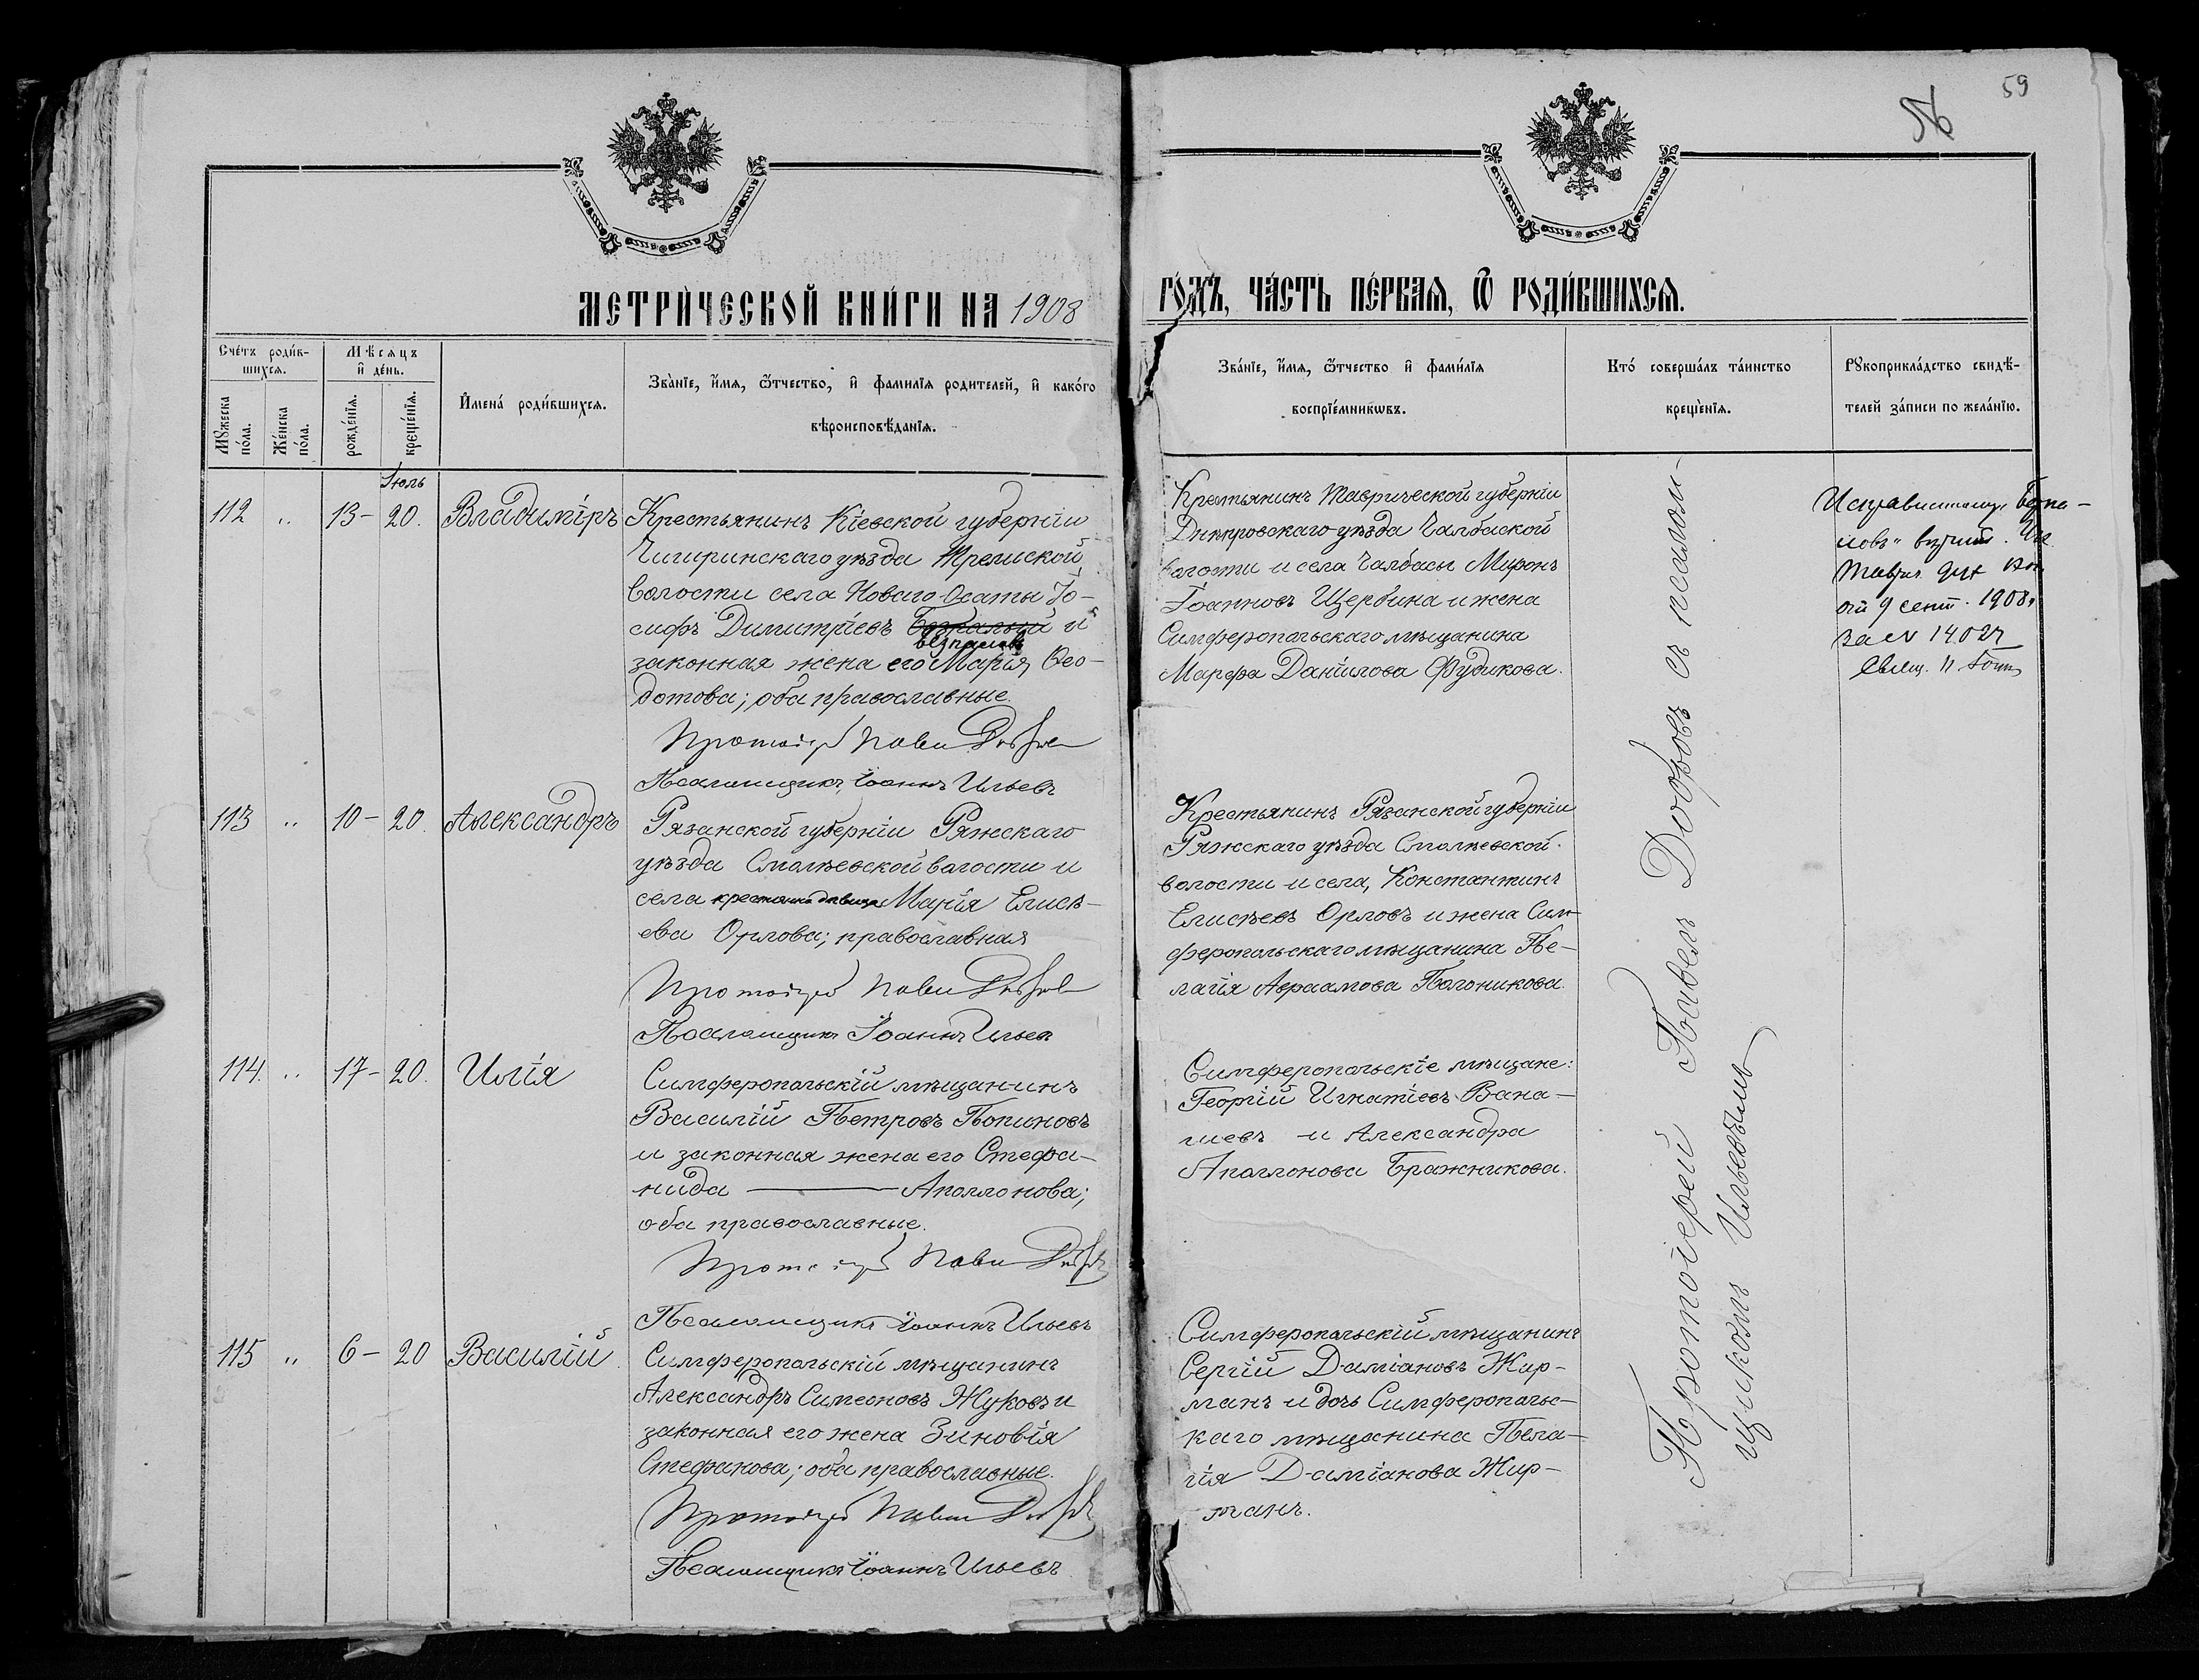 59
56
МЕТРИЧЕСКОЙ КНИГИ НА 1908
ГОДЪ, ЧАСТЬ ПЕРВАЯ, Ѿ РОДИВШИХСЯ.
Счетъ родив-
шихся.
Мѣсяцъ
и день.
Мужеска
пола.
Женска
пола.
рожденія.
крещенія.
Имена родившихся.
Званіе, имя, ѿтчество, и фамилія родителей, и какого
вѣроисповѣданія.
Званіе, имя, ѿтчество и фамилія
воспріемникѡвъ.
Кто совершалъ таинство
крещенія.
Рукоприкладство свидѣ-
телей записи по желанію.
Іюль
112 „ 13 – 20. Владиміръ
Крестьянинъ Кіевской губерніи
Чигиринскаго уѣзда
волости села Новаго-Осоты Іо-
сифъ Димитріевъ и
законная жена его Марія Ѳео-
дотова; оба православные.
Протоіерей Павелъ Добровъ
Псаломщикъ Іоаннъ Ильевъ
Крестьянинъ Таврической губерніи
Днѣпровскаго уѣзда Чалбаской
волости и села Чалбасы Миронъ
Іоанновъ Щербина и жена
Симферопольскаго мѣщанина
Марфа Даніилова Фудикова.
9 сент. 1908 г.
за № 14027
113 „ 10 – 20. Александръ
Рязанской губерніи Ряжскаго
уѣзда Смолѣевской волости и
села крестьянка дѣвица Марія Елисѣ-
ева Орлова; православная
Протоіерей Павелъ Добровъ
Псаломщикъ Іоаннъ Ильевъ
Крестьянинъ Рязанской губерніи
Ряжскаго уѣзда Смолѣевской
волости и села, Константинъ
Елисѣевъ Орловъ и жена Сим-
феропольскаго мѣщанина Пе-
лагія Авраамова Положникова.
114. „ 17 – 20. Илія
Симферопольскій мѣщанинъ
Василій Петровъ Попиновъ
и законная жена его Стефа-
нида — Аполлонова;
оба православные.
Протоіерей Павелъ Добровъ
Псаломщикъ Іоаннъ Ильевъ
Симферопольскіе мѣщане:
Георгій Игнатіевъ Вана-
гіевъ и Александра
Аполлонова Бражникова.
115 „ 6 – 20 Василій
Симферопольскій мѣщанинъ
Александръ Симеоновъ Жуковъ и
законная его жена Зиновія
Стефанова; оба православные.
Протоіерей Павелъ Добровъ
Псаломщикъ Іоаннъ Ильевъ
Симферопольскій мѣщанинъ
Сергій Даміановъ Жир-
манъ и дочь Симферопольс-
каго мѣщанина Пела-
гія Даміанова Жир-
манъ.
Протоіерей Павелъ Добровъ съ псалом-
щикомъ Ильевымъ